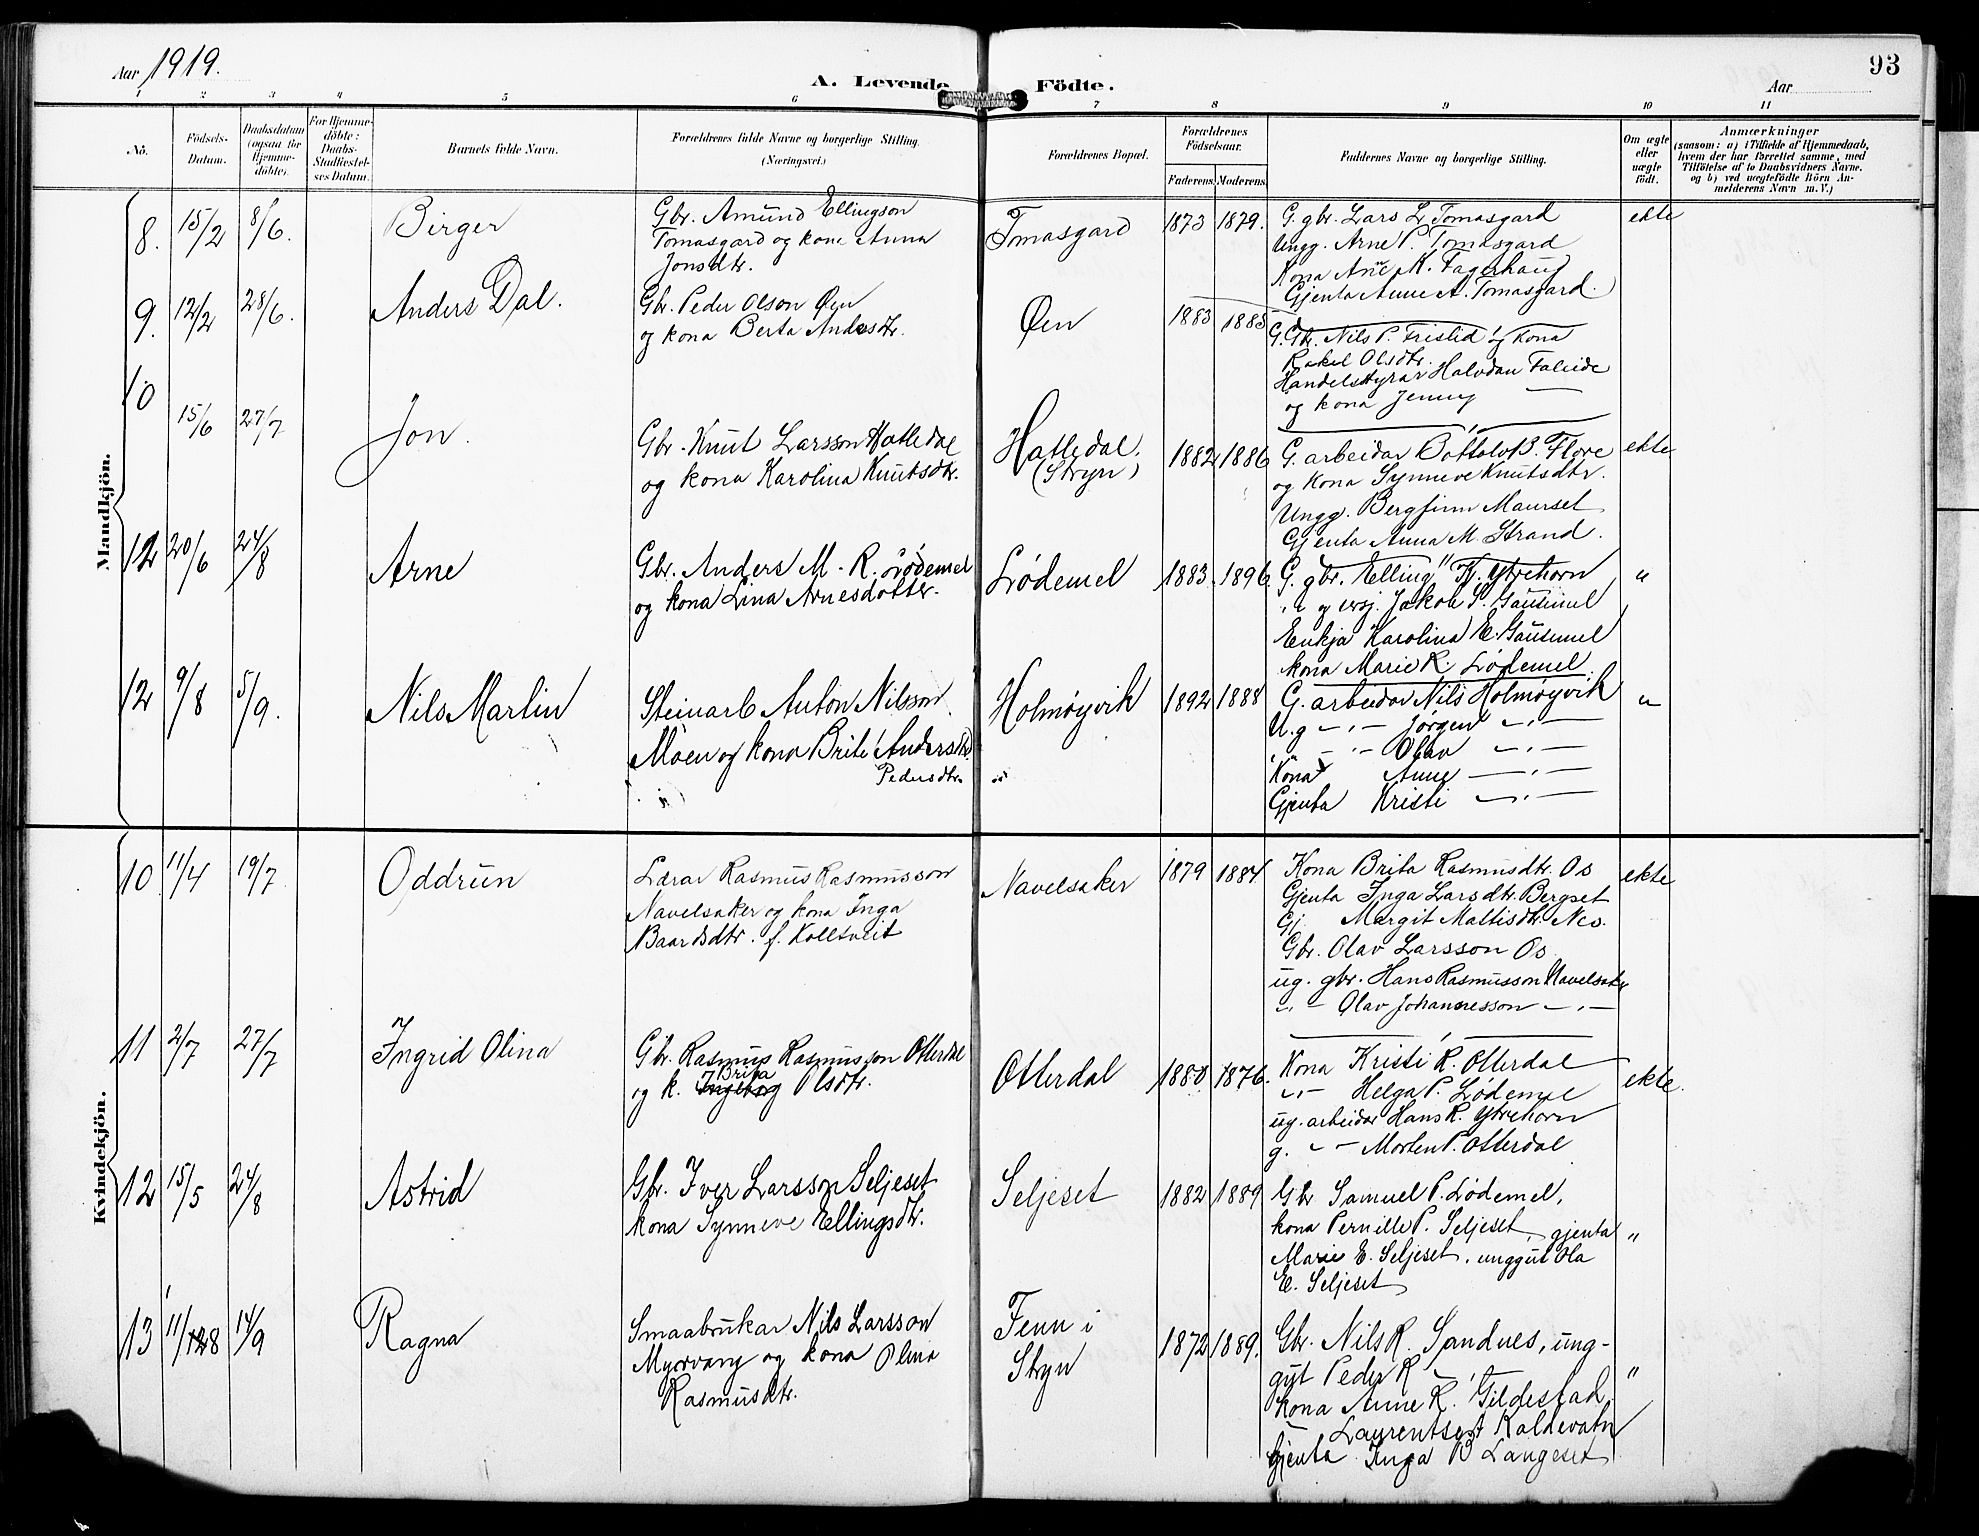 Aar 1919.
A. Levende Födte.
Aar
93
1 2 3 4 5 6 7 8 9 10 11
Nô.
Födsels-Datum.
Daabsdatum (ogsaa for Hjemme-döbte).
For Hjemme-döbte: Daabs-Stadfæstel-ses Datum.
Barnets fulde Navn.
Forældrenes fulde Navne og borgerlige Stilling. (Næringsvei.)
Forældrenes Bopæl.
Forældrenes Födselsaar.
Faderens. Moderens.
Faddernes Navne og borgerlige Stilling.
Om ægte eller uægte födt.
Anmærkninger
(saasom: a) i Tilfælde af Hjemmedaab,
hvem der har forrettet samme, med
Tilföielse af to Daabsvidners Navne.
og b) ved uægtefödte Börn An-
melderens Navn m. V.)
Mandkjön.
8. 15/2 8/6. Birger
Gbr. Amund Ellingson
Tomasgard og kona Anna
Jonsdtr.
Tomasgard 1873 1879.
G. gbr. Lars L. Tomasgard
Ungg. Arne P. Tomasgard
Kona Ane K. Fagerhaug
Gjenta Anne A. Tomasgard.
ekte
9. 12/2 28/6. Anders Dal.
Gbr. Peder Olson Øen
og kona Berta Andersdtr.
Øen 1883 1885
G. Gbr. Nils P. Frislid og kona
Rakel Olsdtr.
Handelsstyrar Halvdan Faleide
og kona Jenny
10 15/6 27/7 Jon.
Gbr. Knut Larsson Hatledal
og kona Karolina Knutsdtr.
Hatledal.
(Stryn)
1882 1886
G. arbeidar Bottolv B. Flore
og kona Synneve Knutsdtr.
Ungg. Bergfinn Maurset
Gjenta Anna M. Strand.
ekte
12 20/6 24/8 Arne
Gbr. Anders M. R. Lødemel
og kona Lina Arnesdotter.
Lødemel 1883. 1896.
G. gbr. Elling Kj. Ytrehorn
" " og ersj. Jakob S. Gausemel
Enkja Karolina E. Gausemel
kona Marie R. Lødemel
"
12 9/8 5/9. Nils Martin
Steinarb Anton Nilsson
Moen og kona Brite Andersdtr.
Pedersdtr.
Holmøyvik 1892 1888
G. arbeidar Nils Holmøyvik
U.g -"- Jørgen -"-
" -"- Olav -"-
Kona Anne -"-
Gjenta Kristi -"-
"
Kvindekjön.
10 11/4 19/7. Oddrun
Lærar Rasmus Rasmusson
Navelsaker og kona Inga
Baardsdtr. f. Kolltveit
Navelsaker 1879 1884
Kona Brita Rasmusdtr. Os
Gjenta Inga Larsdtr. Bergset
Gj. Margit Mattisdtr. Nes.
Gbr. Olav Larsson Os.
ug. gbr. Hans Rasmusson Navelsaker
-"- Olav Johannesson -"-
ekte
11 2/7 27/7 Ingrid Olina
Gbr. Rasmus Rasmusson Otterdal
Brita
og k. Ingeborg Olsdtr.
Otterdal 1880 1876.
Kona Kristi R. Otterdal
-"- Helga P. Lødemel
ug. arbeidar Hans R. Ytrehorn
g. -"- Morten P. Otterdal
ekte.
12 15/5 24/8 Astrid
Gbr. Iver Larsson Seljeset
kona Synneve Ellingsdtr.
Seljeset 1882 1889
Gbr Samuel P. Lødemel,
kona Pernille P. Seljeset, gjenta
Marie E. Seljeset, unggut Ola
E. Seljeset
"
13 11/8 14/9 Ragna
Smaabrukar Nils Larsson
Myrvang og kona Olina
Rasmusdtr.
Fenn i
Stryn
1872 1889.
Gbr. Nils R. Sandnes, ung-
gut Peder R -"-
kona Anne R. Gildestad.
- Laurentse A Kaldevatn
Gjenta Inga B Langeset
"